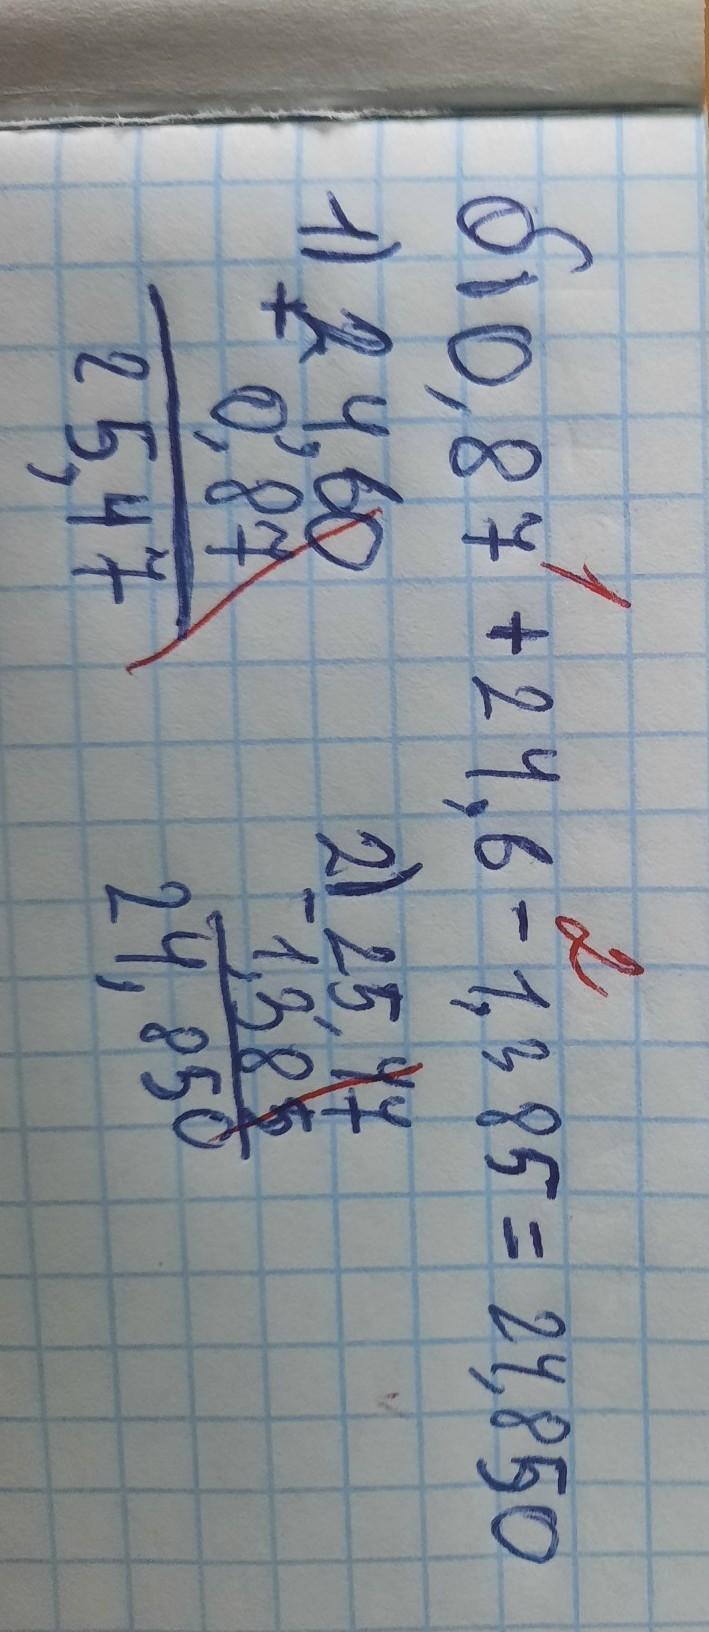 б) 0,87 + 24,6 - 1,385 = 24,850
1 2
1) 24,60
+ 0,87
25,47
2) 25,47
- 1,385
24,850